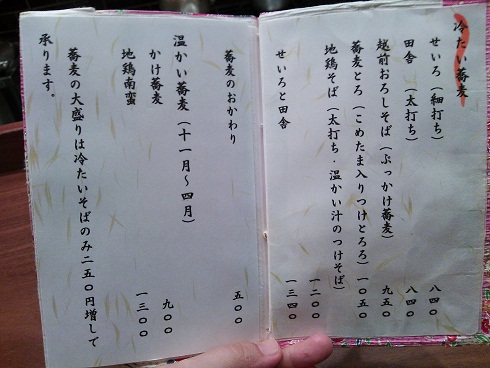 冷たい蕎麦
せいろ（細打ち） 八四〇
田舎（太打ち） 八四〇
越前おろしそば（ぶっかけ蕎麦） 九五〇
蕎麦とろ（こめたま入りつけとろろ） 一〇五〇
地鶏そば（太打ち・温かい汁のつけそば） 一二〇〇
せいろと田舎 一三四〇
蕎麦のおかわり 五〇〇
温かい蕎麦（十一月～四月）
かけ蕎麦 九〇〇
地鶏南蛮 一三〇〇
蕎麦の大盛りは冷たいそばのみ二五〇円増しで
承ります。